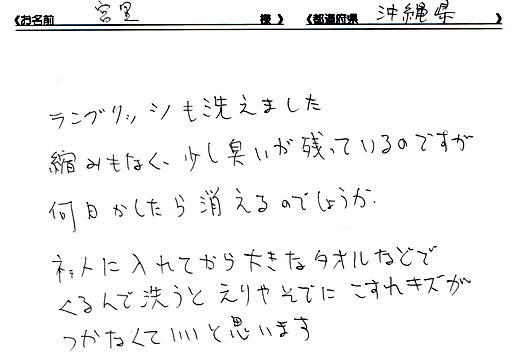 《お名前 宮里 様》 《都道府県 沖縄県 》
ランブリッシも洗えました
縮みもなく、少し臭いが残っているのですが
何日かしたら消えるのでしょうか.
ネットに入れてから大きなタオルなどで
くるんで洗うと えりや そでに こすれキズが
つかなくていいと思います